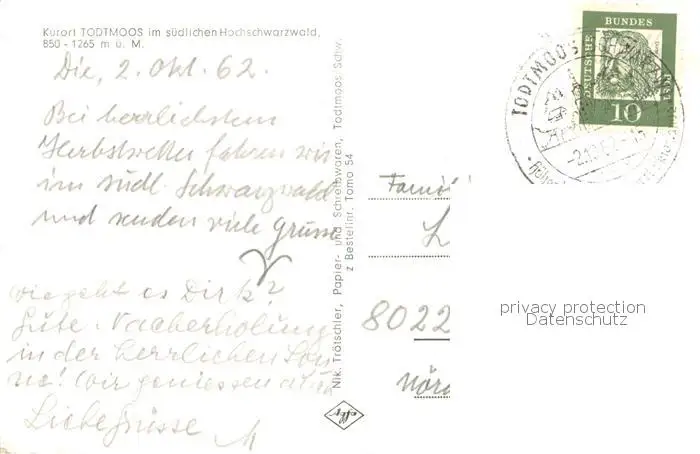 Kurort TODTMOOS im südlichen Hochschwarzwald,
850 - 1265 m ü. M.
Die, 2. Okt. 62.
Bei herrlichstem
Herbstwetter fahren wir
im südl. Schwarzwald
und senden viele Grüsse
wie geht es Dirk?
Gute Nacherholung
in der herrlichen Son
ne! Wir geniessen
Liebe Grüsse M
Nik. Trötschler, Papier- und Schreibwaren, Todtmoos/Sdw.
z Bestellnr. Tomo 54
effer
Fami
L
8022
Nör
DEUTSCHE
BUNDES
POST
10
TODTMOOS (SCHWARZW
-2.10.62-15
privacy protection
Datenschutz